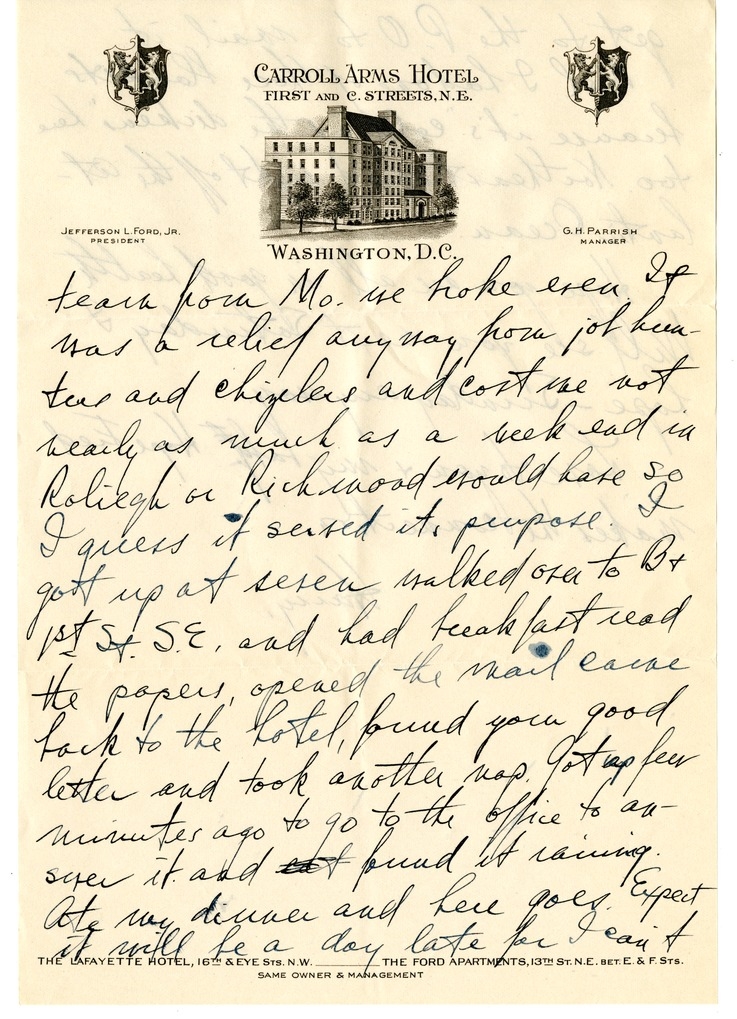 CARROLL ARMS HOTEL
FIRST AND C. STREETS, N.E.
JEFFERSON L. FORD, JR.
PRESIDENT
G. H. PARRISH
MANAGER
WASHINGTON, D.C.
team from Mo. we broke even. It
was a relief anyway from job hun-
ters and chizlers and cost me not
nearly as much as a week end in
Raliegh or Richmood would have so
I guess it served its purpose. I
gott up at seven walked over to B +
1st St. S.E. and had breakfast read
the papers, opened the mail came
back to the hotel, found your good
letter and took another nap. Got up few
minutes ago to go to the office to an-
swer it and found it raining.
Ate my dinner and here goes. Expect
it will be a day late for I can't
THE LAFAYETTE HOTEL, 16TH & EYE STS. N.W. THE FORD APARTMENTS, 13TH ST. N.E. BET. E. & F. STS.
SAME OWNER & MANAGEMENT